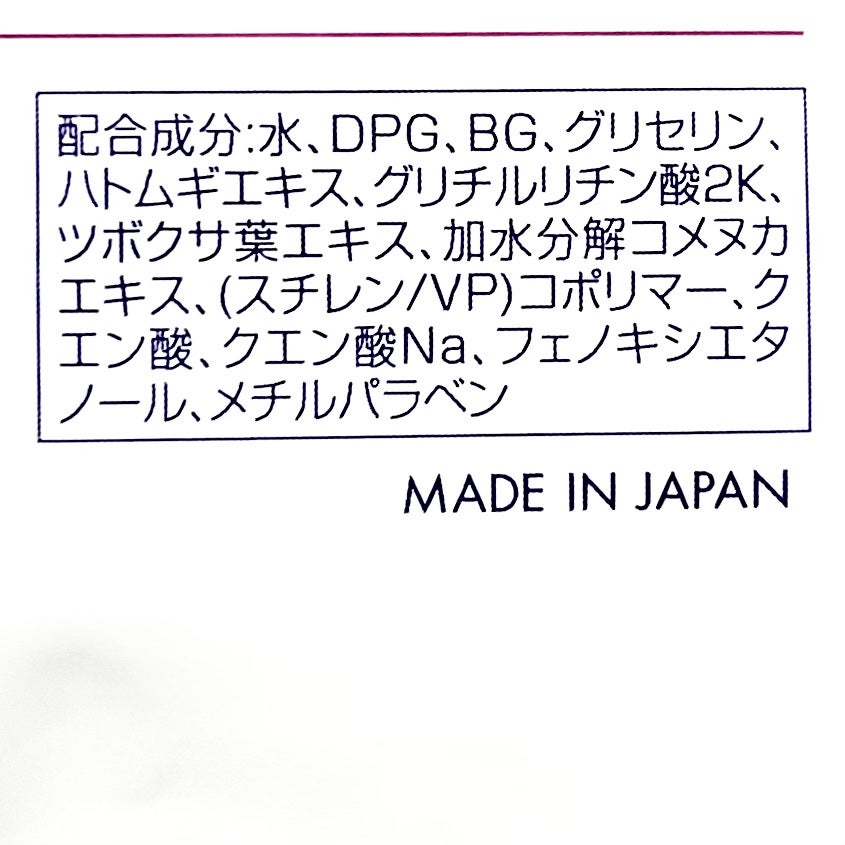 配合成分:水、DPG、BG、グリセリン、
ハトムギエキス、グリチルリチン酸2K、
ツボクサ葉エキス、加水分解コメヌカ
エキス、(スチレン/VP)コポリマー、ク
エン酸、クエン酸Na、フェノキシエタ
ノール、メチルパラベン
MADE IN JAPAN